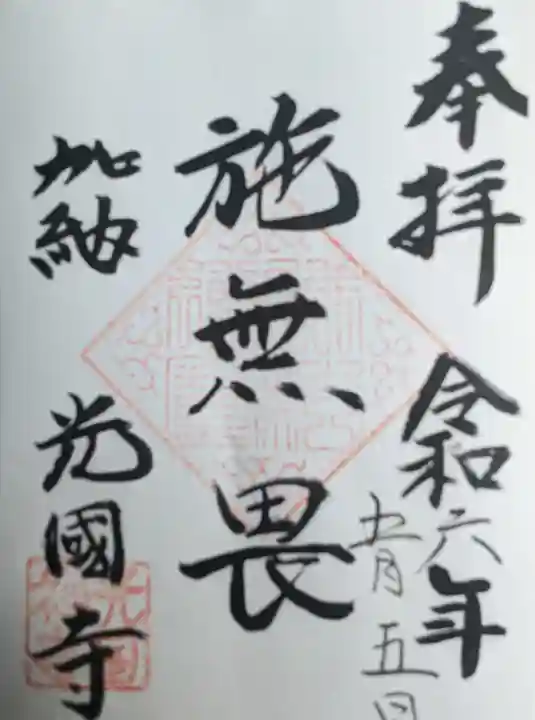 奉拝 令和六年
五月五日
施無畏
加納 光國寺